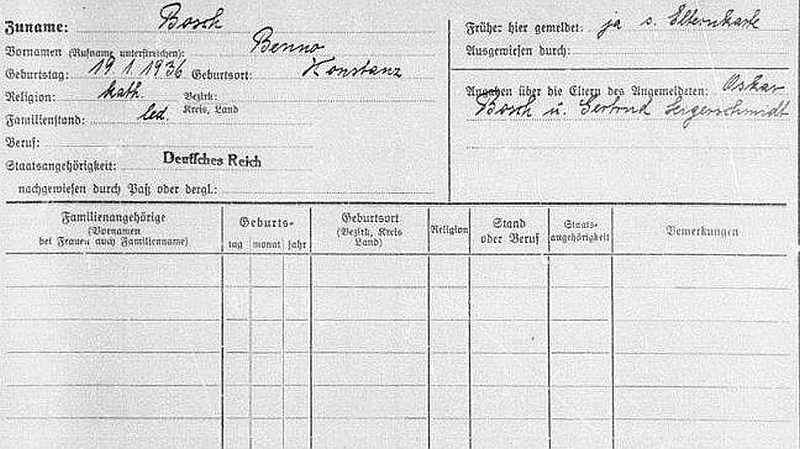 Zuname: Bosch
Vornamen (Rufname unterstreichen): Benno
Geburtstag: 19.1.1936 Geburtsort: Konstanz
Religion: kath. Bezirk: Kreis, Land
Familienstand: led.
Beruf:
Staatsangehörigkeit: Deutsches Reich
nachgewiesen durch Paß oder dergl.:
Früher hier gemeldet: ja s. Elternkarte
Ausgewiesen durch:
Angaben über die Eltern des Angemeldeten: Oskar
Bosch u. Gertrud Seigerschmidt
Familienangehörige
(Vornamen
bei Frauen auch Familienname)
Geburts-
tag monat jahr
Geburtsort
(Bezirk, Kreis
Land)
Religion
Stand
oder Beruf
Staats-
angehörigkeit
Bemerkungen